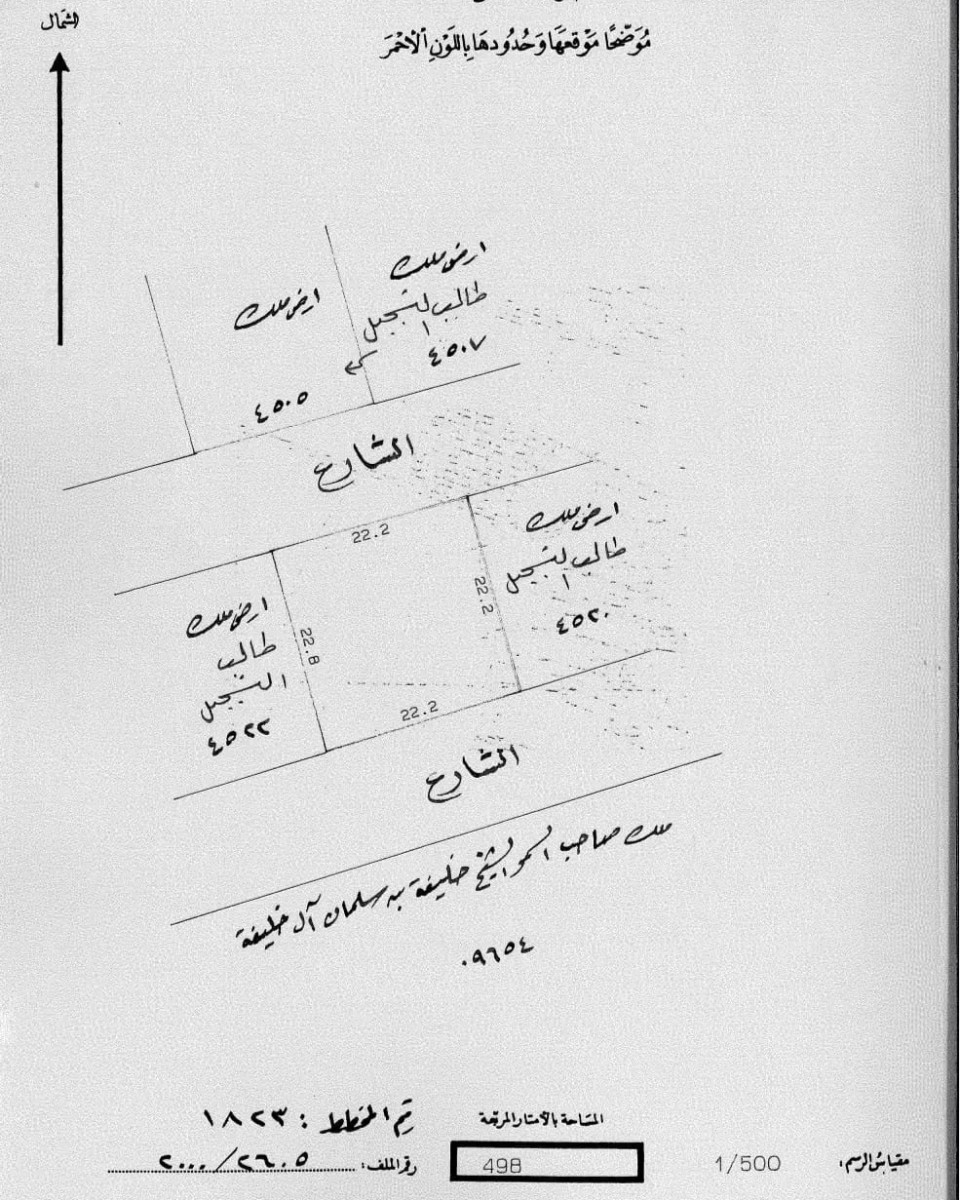 الشمال
مُوَضَّحًا مَوْقعهَا وَحُدُودهَا بِاللَّوْنِ الأَحْمَر
ارض ملك
طالب التسجيل
٤٥٠٧
ارض ملك
٤٥٠٥
الشارع
22.2
ارض ملك
طالب التسجيل
٤٥٢٠
22.2
ارض ملك
طالب
التسجيل
٤٥٢٢
22.8
22.2
الشارع
ملك صاحب السمو الشيخ خليفة بن سلمان آل خليفة
٠٩٦٥٤
المساحة بالأمتار المربعة
رقم المخطط : ١٨٢٣
مقياس الرسم: 1/500
498
رقم الملف: ٢٦٠٥/٢٠٠٠